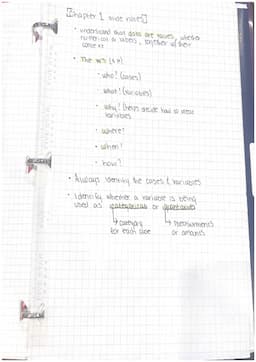 [Chapter 1 slide notes]
• understand that data are values, whether
numerical or labels, together w/ their
context
• The W's (& H)
• who? (cases)
• what? (variables)
• why? (helps decide how to treat
variables
• where?
• when?
• how?
• Always identify the cases & variables
• Identify whether a variable is being
used as categorical or quantitative
↳ category ↳ measurements
for each case or amounts